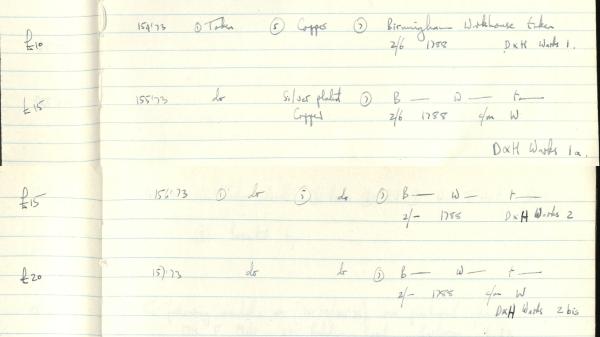 £10 154'73 ① Token ⑤ Copper ⑦ Birmingham Workhouse token
2/6 1788 D&H Warks 1.
£15 155'73 do Silver plated ⑦ B— W— t—
Copper 2/6 1788 c/m W
D&H Warks 1a.
£15 156'73 ① do ⑤ do ⑦ B— W— t—
2/- 1788 D&H Warks 2
£20 157'73 do do ⑦ B— W— t—
2/- 1788 c/m W
D&H Warks 2 bis